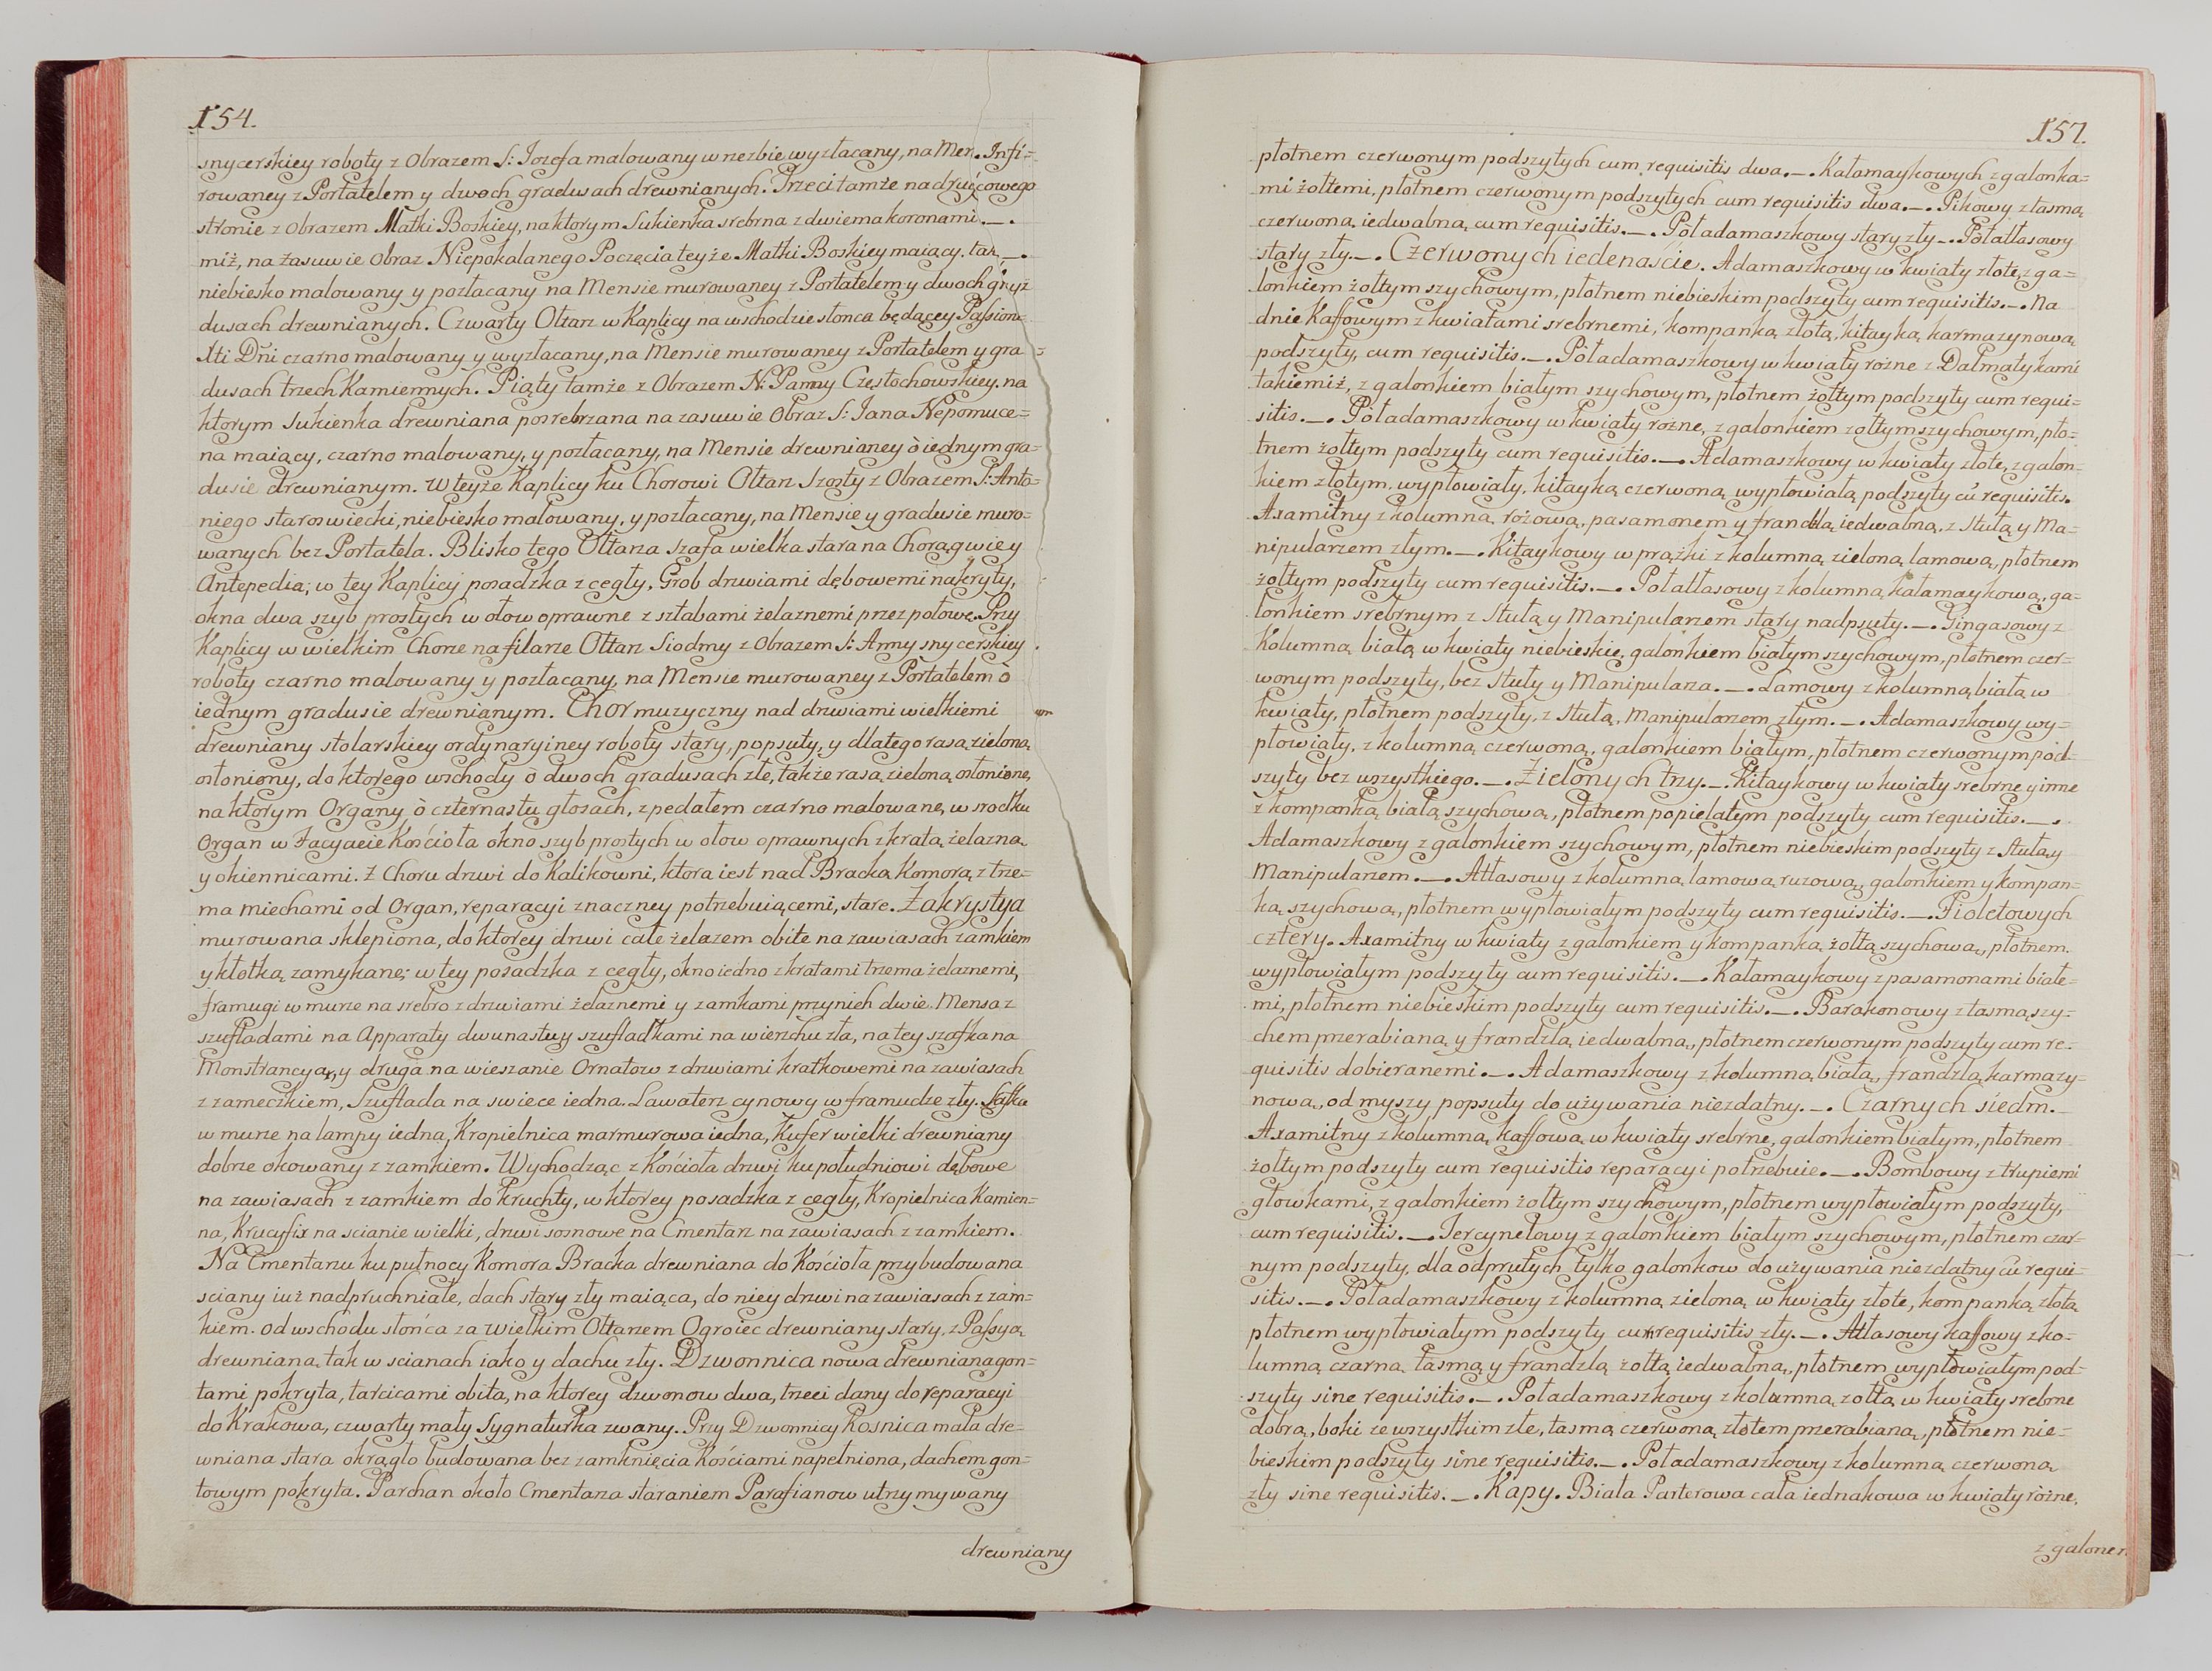 154.
snycerskiey roboty z Obrazem S: Jozefa malowany w rzezbie wyzłacany, na Men. Infi=
rowaney z Portatelem y dwoch gradusach drewnianych. Trzeci tamże na
stronie z Obrazem Matki Boskiey, na ktorym Sukienka srebrna z dwiema koronami._.
miż, na zasuwie Obraz Niepokalanego Poczęcia teyże Matki Boskiey maiący. tak,_.
niebiesko malowany y pozłacany na Mensie murowaney z Portatelem y dwoch
dusach drewnianych. Czwarty Ołtarz w Kaplicy na wschodzie słonca będącey Passion:
Xti Dñi czarno malowany y wyzłacany, na Mensie murowaney z Portatelem y gra=
dusach trzech Kamiennych. Piąty tamże z Obrazem N: Panny Częstochowskiey, na
ktorym Sukienka drewniana posrebrzana na zasuwie Obraz S: Jana Nepomuce=
na maiący, czarno malowany, y pozłacany, na Mensie drewnianey ò iednym gra=
dusie drewnianym. W teyże Kaplicy ku Chorowi Ołtarz Szosty z Obrazem S: Anto=
niego staroswiecki, niebiesko malowany, y pozłacany, na Mensie y gradusie muro=
wanych bez Portatela. Blisko tego Ołtarza szafa wielka stara na Chorągwie y
Antepedia; w tey Kaplicy posadzka z cegły, Grob drzwiami dębowemi nakryty,
okna dwa szyb prostych w ołow oprawne z sztabami żelaznemi przez połowę. Przy
Kaplicy w wielkim Chorze na filarze Ołtarz Siodmy z Obrazem S: Anny snycerskiey
roboty czarno malowany y pozłacany, na Mensie murowaney z Portatelem ò
iednym gradusie drewnianym. Chor muzyczny nad drzwiami wielkiemi
drewniany stolarskiey ordynaryiney roboty stary, popsuty, y dlatego rasą zieloną
osłoniony, do ktorego wschody ò dwoch gradusach złe, także rasą zieloną osłonione,
na ktorym Organy ò czternastu głosach, z pedałem czarno malowane, w srodku
Organ w Facyacie Kościoła okno szyb prostych w ołow oprawnych z kratą żelazną
y okiennicami. Z Choru drzwi do Kalikowni, ktora iest nad Bracką Komorą z trze=
ma miechami od Organ, reparacyi znaczney potrzebuiącemi, stare. Zakrystya
murowana sklepiona, do ktorey drzwi całe żelazem obite na zawiasach zamkiem
y kłotką zamykane; w tey posadzka z cegły, okno iedno z kratami trzema żelaznemi,
framugi w murze na srebro z drzwiami żelaznemi y zamkami przynich dwie. Mensa z
szufladami na Apparaty dwunastu y szufladkami na wierzchu zła, na tey szafka na
Monstrancyą, y druga na wieszanie Ornatow z drzwiami kratkowemi na zawiasach
z zameczkiem, Szuflada na swiece iedna. Lawaterz cynowy w framudze zły. Szafka
w murze na lampy iedna, Kropielnica marmurowa iedna, Kufer wielki drewniany
dobrze okowany z zamkiem. Wychodząc z Kościoła drzwi ku południowi dębowe
na zawiasach z zamkiem do kruchty, w ktorey posadzka z cegły, Kropielnica Kamien=
na, Krucyfix na scianie wielki, drzwi sosnowe na Cmentarz na zawiasach z zamkiem.
Na Cmentarzu ku pułnocy Komora Bracka drewniana do Kościoła przybudowana
sciany iuż nadpruchniałe, dach stary zły maiąca, do niey drzwi na zawiasach z zam=
kiem. od wschodu słońca za Wielkim Ołtarzem Ogroiec drewniany stary, z Passyą
drewnianą, tak w scianach iako y dachu zły. Dzwonnica nowa drewniana gon=
tami pokryta, tarcicami obita, na ktorey dzwonow dwa, trzeci dany do reparacyi
do Krakowa, czwarty mały Sygnaturka zwany. Przy Dzwonnicy Kosnica mała dre=
wniana stara okrągło budowana bez zamknięcia Kościami napełniona, dachem gon=
towym pokryta. Parchan około Cmentarza staraniem Parafianow utrzymywany
drewniany
157.
płotnem czerwonym podszytych cum requisitis dwa._. Kałamaykowych z galonka=
mi żołtemi, płotnem czerwonym podszytych cum requisitis dwa._. Pikowy z tasmą
czerwoną iedwabną, cum requisitis._. Poładamaszkowy stary zły_. Połatłasowy
stary zły._. Czerwonych iedenaście. Adamaszkowy w kwiaty złote, z ga=
lonkiem żołtym szychowym, płotnem niebieskim podszyty cum requisitis._. Na
dnie Kaffowym z kwiatami srebrnemi, kompanką złotą, kitayką karmazynową
podszyty, cum requisitis._. Poładamaszkowy w kwiaty rożne z Dalmatykami
takiemiż, z galonkiem białym szychowym, płotnem żołtym podszyty cum requi=
sitis._. Poładamaszkowy w kwiaty rożne, z galonkiem żołtym szychowym, pło=
tnem żołtym podszyty cum requisitis._. Adamaszkowy w kwiaty złote, z galon=
kiem złotym, wypłowiały, kitayką czerwoną wypłowiałą podszyty cũ requisitis.
Axamitny z kolumną rożową, pasamonem y frandzlą iedwabną, z Stułą y Ma=
nipularzem złym._. Kitaykowy w prążki z kolumną zieloną lamową, płotnem
żołtym podszyty cum requisitis._. Połatłasowy z kolumną kałamaykową, ga=
lonkiem srebrnym z Stułą y Manipularzem stary nadpsuty._. Gingasowy z
Kolumną białą w kwiaty niebieskie, galonkiem białym szychowym, płotnem czer=
wonym podszyty, bez Stuły y Manipularza._. Lamowy z kolumną białą w
kwiaty, płotnem podszyty, z Stułą, Manipularzem złym._. Adamaszkowy wy=
płowiały, z kolumną czerwoną, galonkiem białym, płotnem czerwonym pod=
szyty bez wszystkiego._. Zielonych trzy._. Kitaykowy w kwiaty srebrne y inne
z kompanką białą szychową, płotnem popielatym podszyty cum requisitis._.
Adamaszkowy z galonkiem szychowym, płotnem niebieskim podszyty z Stułą y
Manipularzem._. Atłasowy z kolumną lamową ruzową, galonkiem y kompan=
ką szychową, płotnem wypłowiałym podszyty cum requisitis._. Fioletowych
cztery. Axamitny w kwiaty z galonkiem y kompanką żołtą szychową, płotnem
wypłowiałym podszyty cum requisitis._. Kałamaykowy z pasamonami białe=
mi, płotnem niebieskim podszyty cum requisitis._. Barakonowy z tasmą szy=
chem przerabianą y frandzlą iedwabną, płotnem czerwonym podszyty cum re=
quisitis dobieranemi._. Adamaszkowy z kolumną białą, frandzlą karmazy=
nową, od myszy popsuty do używania niezdatny._. Czarnych siedm.
Axamitny z kolumną kaffową w kwiaty srebrne, galonkiem białym, płotnem
żołtym podszyty cum requisitis reparacyi potrzebuie._. Bombowy z trupiemi
głowkami, z galonkiem żołtym szychowym, płotnem wypłowiałym podszyty,
cum requisitis._. Tercynelowy z galonkiem białym szychowym, płotnem czar=
nym podszyty, dla odprutych tylko galonkow do używania niezdatny cũ requi=
sitis._. Poładamaszkowy z kolumną zieloną w kwiaty złote, kompanką złotą
płotnem wypłowiałym podszyty cum requisitis zły._. Atłasowy kaffowy z ko=
lumną czarną, tasmą y frandzlą żołtą iedwabną, płotnem wypłowiałym pod=
szyty sine requisitis._. Poładamaszkowy z kolumną żołtą w kwiaty srebrne
dobrą, boki ze wszystkim złe, tasmą czerwoną złotem przerabianą, płotnem nie=
bieskim podszyty sine requisitis._. Poładamaszkowy z kolumną czerwoną
zły sine requisitis._. Kapy. Biała Parterowa cała iednakowa w kwiaty rożne,
z galonem